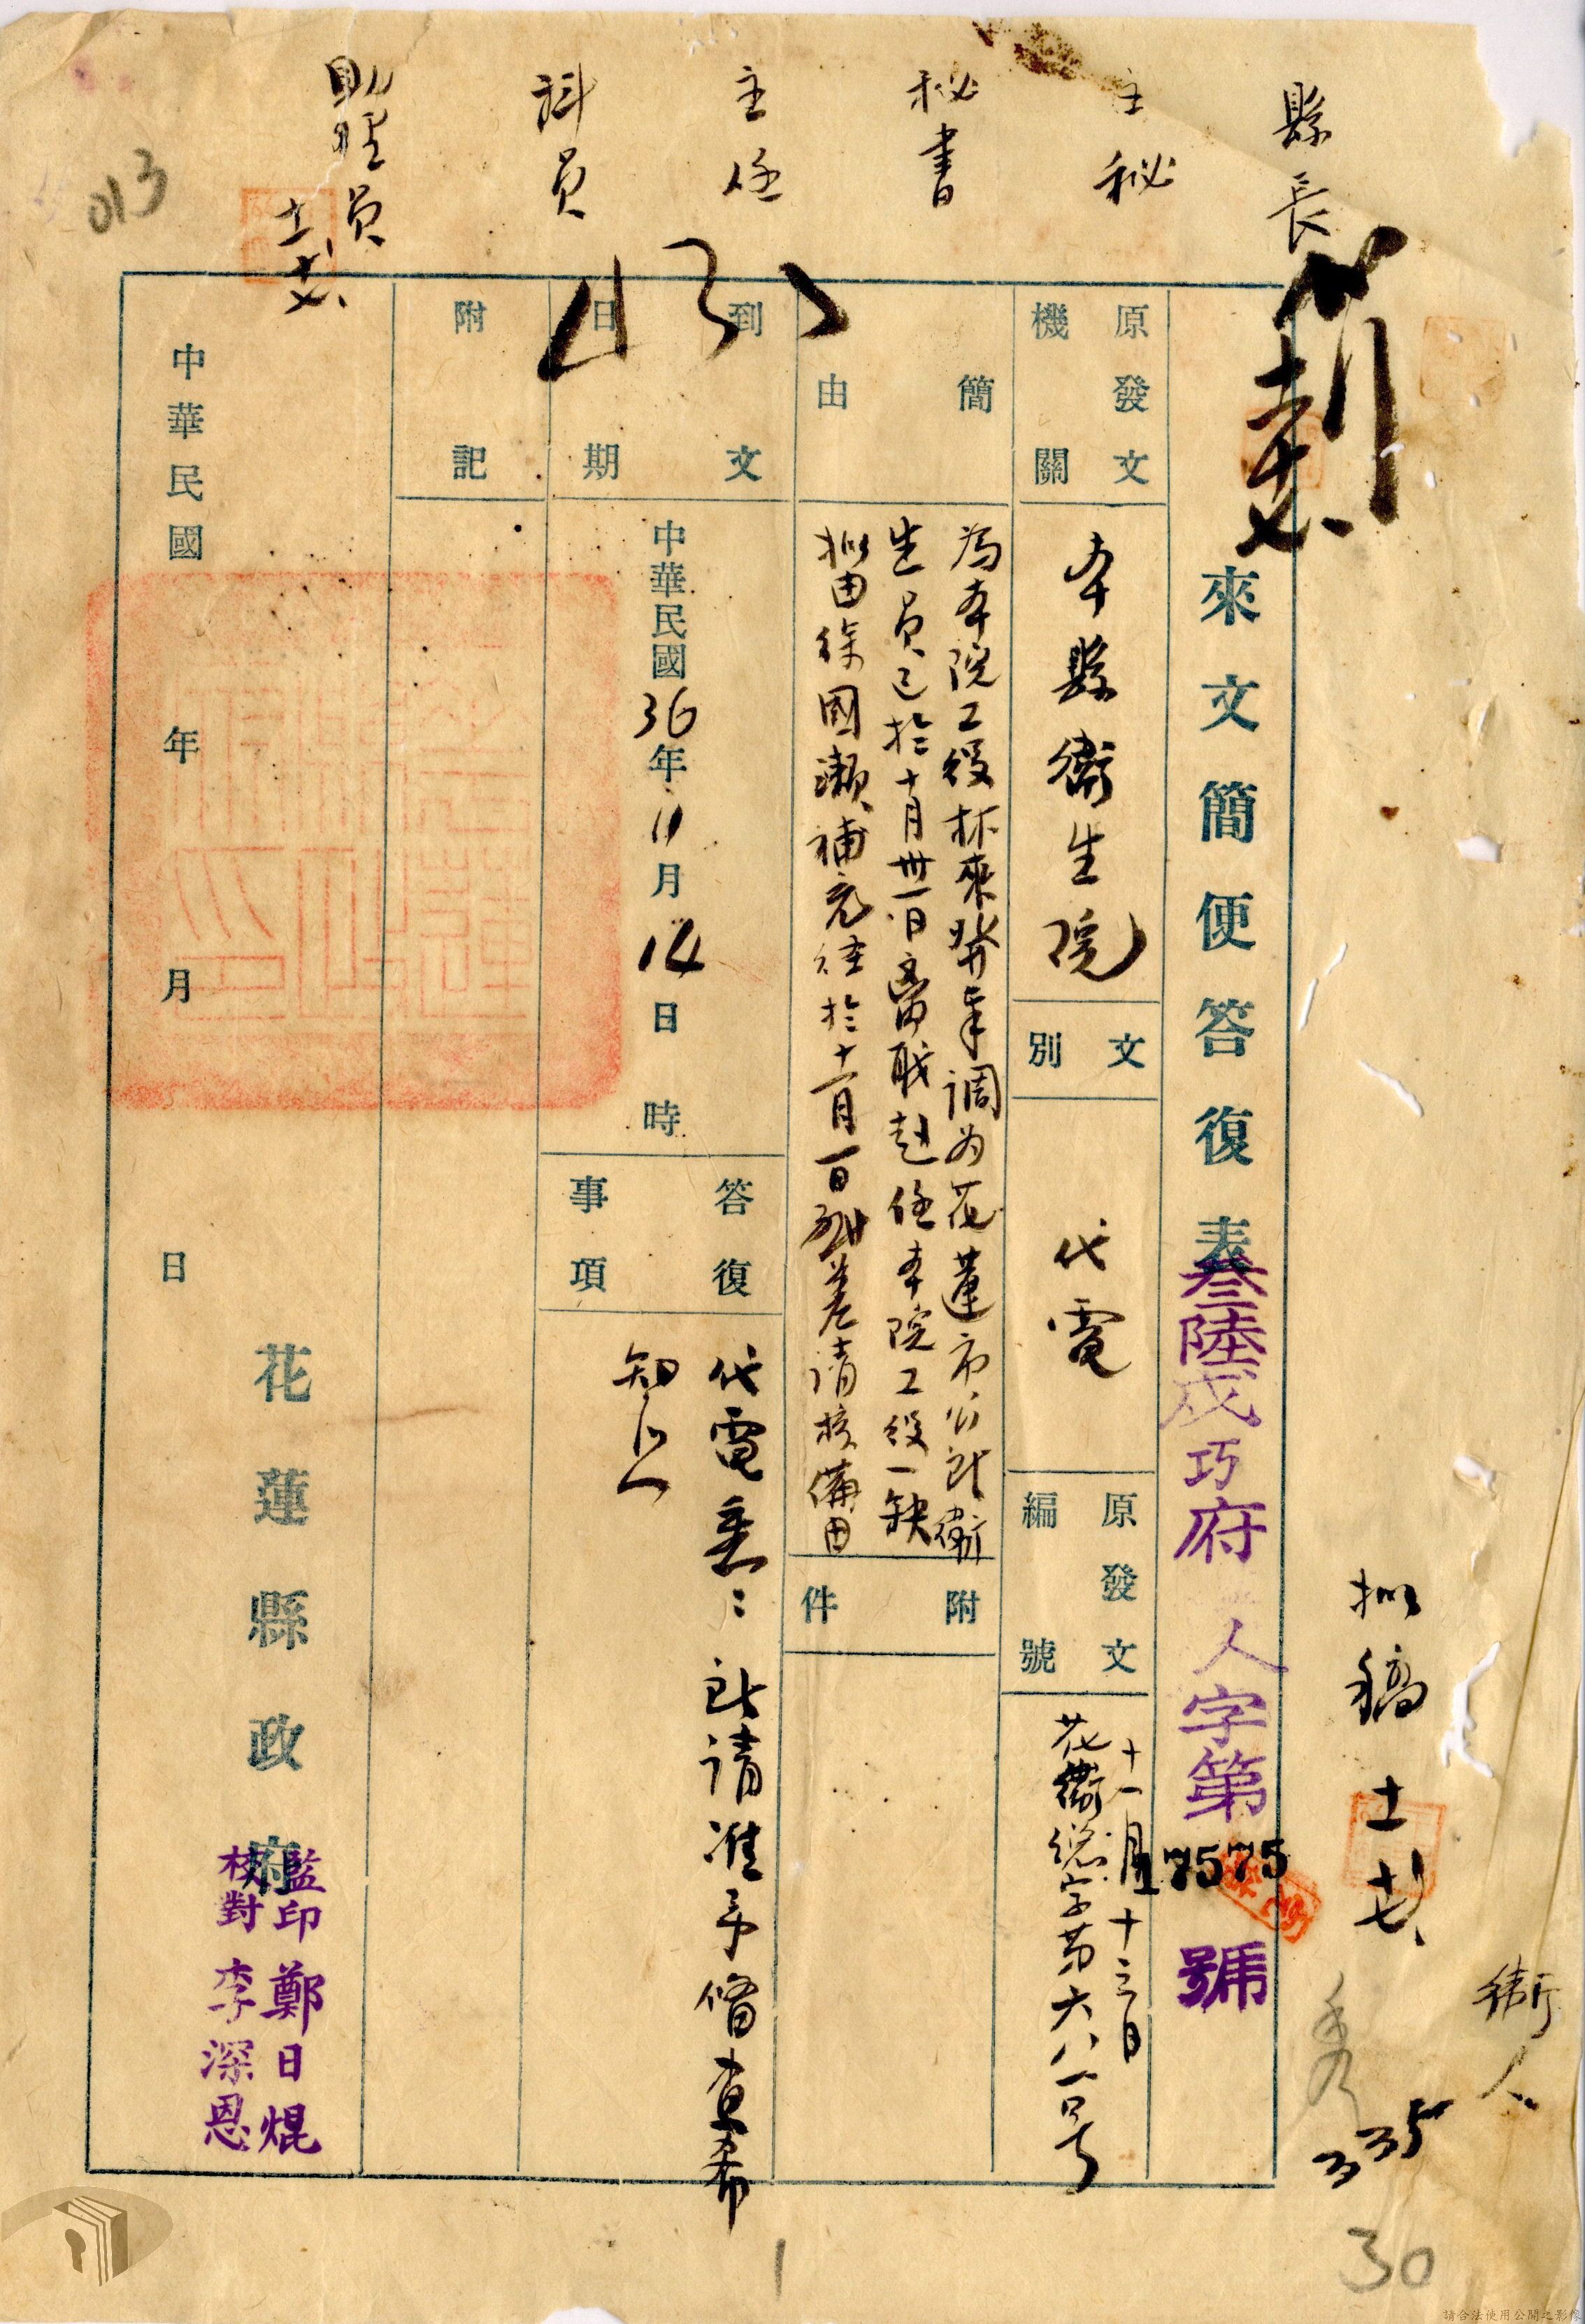 縣長
主秘
秘書
主任
科員
助理員
十一 廿七
013
來文簡便答復表
叁陸戌巧府人字第17575號
擬稿 十一 廿七
衛人
335
30
原發文機關
本縣衛生院
文別
代電
原發文編號
十一月十三日
花衛總字第六八一号
簡由
為本院工役林來發奉調为花蓮市公所衛
生員已於十月卅一日离職赴任本院工役一缺
拟由徐國瀨補充經於十一月一日到差請核備由
附件
到文日期
中華民國36年11月14日 時
答復事項
代電悉:所請准予備查希
知照
附記
中華民國 年 月 日
花蓮縣政府
監印 鄭日焜
校對 李深恩
1
請合法使用公開之影像